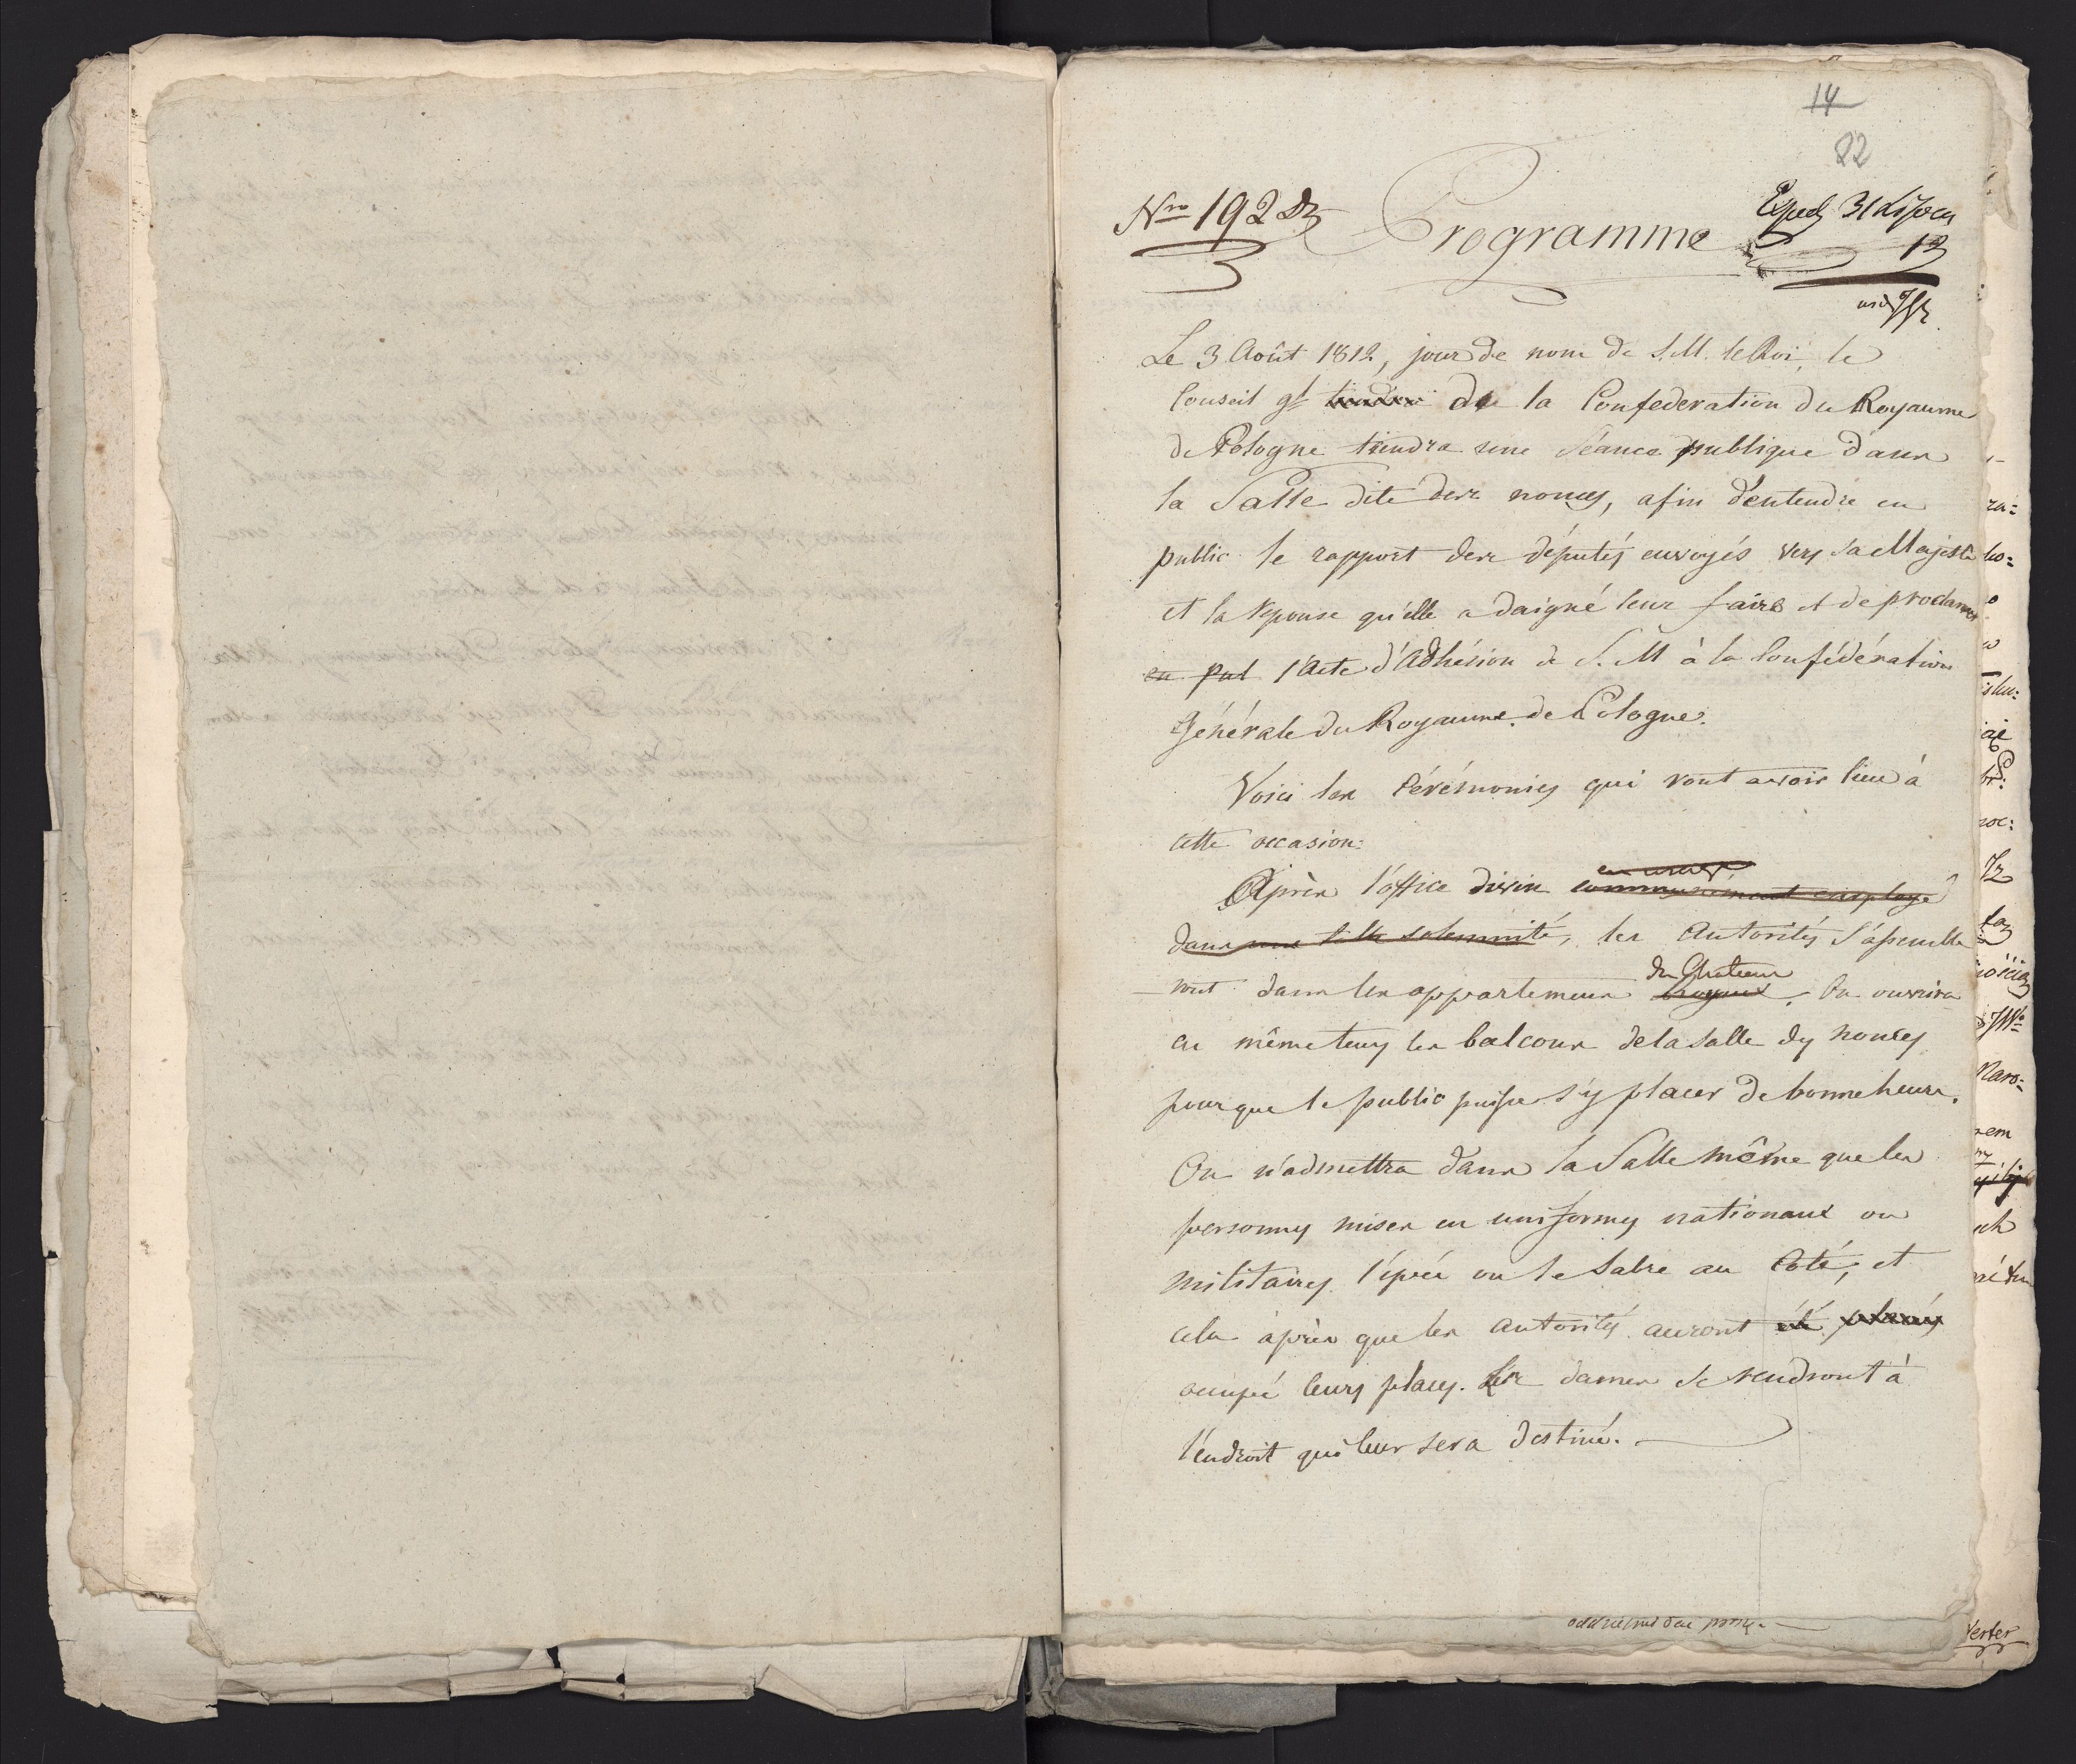 14
22
Nro 192
Programme
Exped 31
Le 3 Août 1812, jour de nom de S.M. le Roi, le
Conseil gl tiendra de la Confederation du Royaume
de Pologne tiendra une Séance publique dans
la Salle dite des nonces, afin d'entendre en
public le rapport des députés envoyés vers Sa Majesté
et la réponse qu'elle a daigné leur faire et de proclamer
en pub l'Acte d'Adhésion de S. M à la Confédération
Générale du Royaume de Pologne.
Voici les Cérémonies qui vont avoir lieu à
cette occasion:
Après l'office divin communément employé
dans une telle solemnité, les Autorités s'assemble
ront dans les appartemens
du Chateau
Royaux. On ouvrira
en même tems les balcons de la Salle des nonces
pour que le public puisse s'y placer de bonne heure.
On n'admettra dans la Salle même que les
personnes mises en uniformes nationaux ou
militaires l'épée ou le Sabre au Coté, et
cela après que les autorités auront été placés
occupé leurs places. Les dames se rendront à
l'endroit qui leur sera destiné.